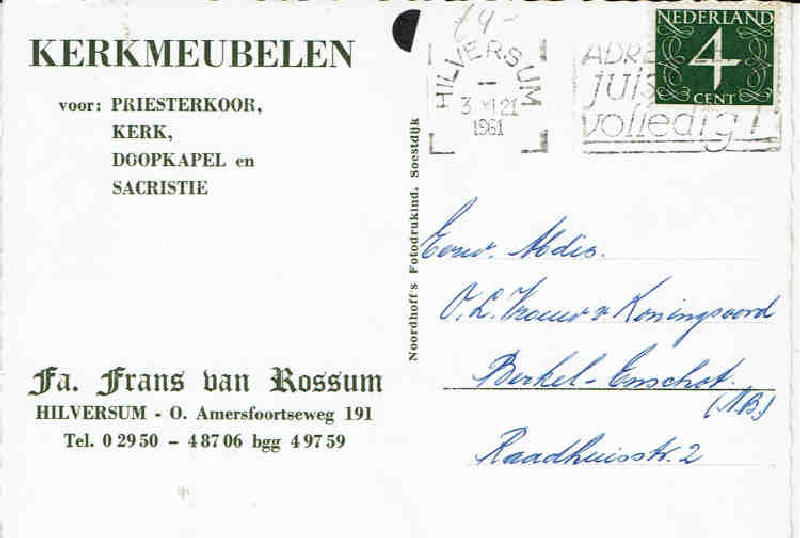 KERKMEUBELEN
voor: PRIESTERKOOR,
KERK,
DOOPKAPEL en
SACRISTIE
Fa. Frans van Rossum
HILVERSUM - O. Amersfoortseweg 191
Tel. 0 29 50 - 4 87 06 bgg 4 97 59
Noordhoff's Fotodrukind. Soestdijk
HILVERSUM
3 XI 21
1961
ADRE
juis
volledig!
NEDERLAND
4
CENT
Eerw. Abdis.
O.L. Vrouw v Koningsoord
Berkel-Enschot.
(N.B.)
Raadhuisstr. 2